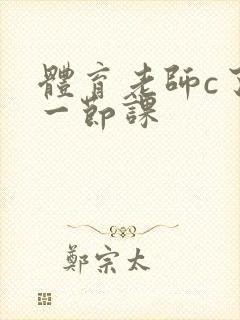 體育老師c了
一節課
鄭宗太